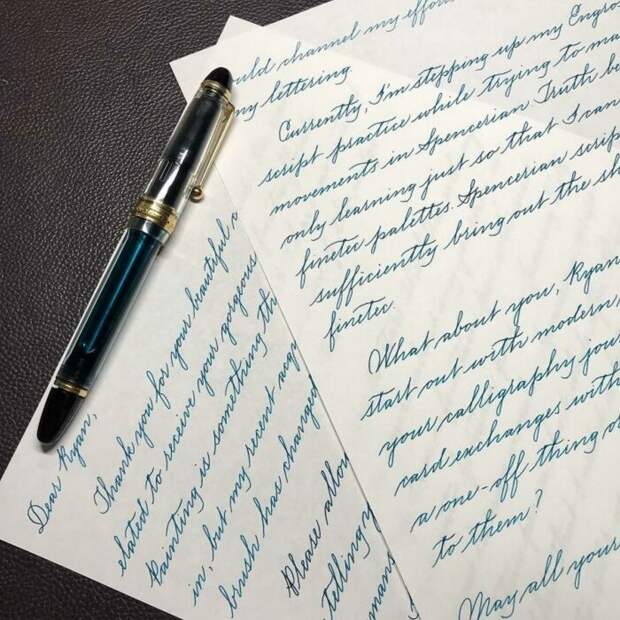 Dear Ryan,
Thank you for your beautiful
elated to receive your gorgeous
Painting is something
in, but my recent
brush has changed
Please allow
telling
many
ould channel my effor
my lettering.
Currently, I'm stepping up my Engro
script practice while trying to ma
movements in Spencerian Truth be
only learning just so that I can
finetec palettes. Spencerian scrip
sufficiently bring out the sh
finetec.
What about you, Ryan
start out with modern
your calligraphy jour
card exchanges with
a one-off thing o
to them?
May all your